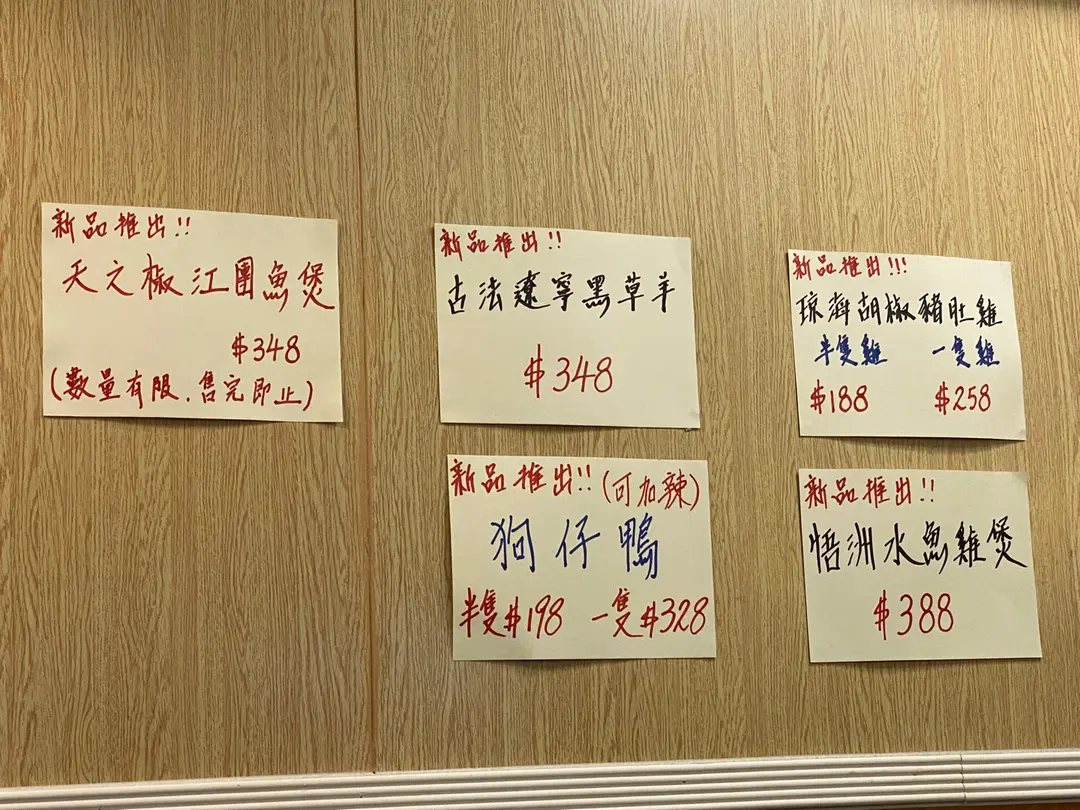 新品推出!!
天之椒江團魚煲
$348
(數量有限.售完即止)
新品推出!!
古法遼寧黑草羊
$348
新品推出!!!
琼海胡椒豬肚雞
半隻雞 一隻雞
$188 $258
新品推出!!(可加辣)
狗仔鴨
半隻$198 一隻$328
新品推出!!
悟洲水魚雞煲
$388